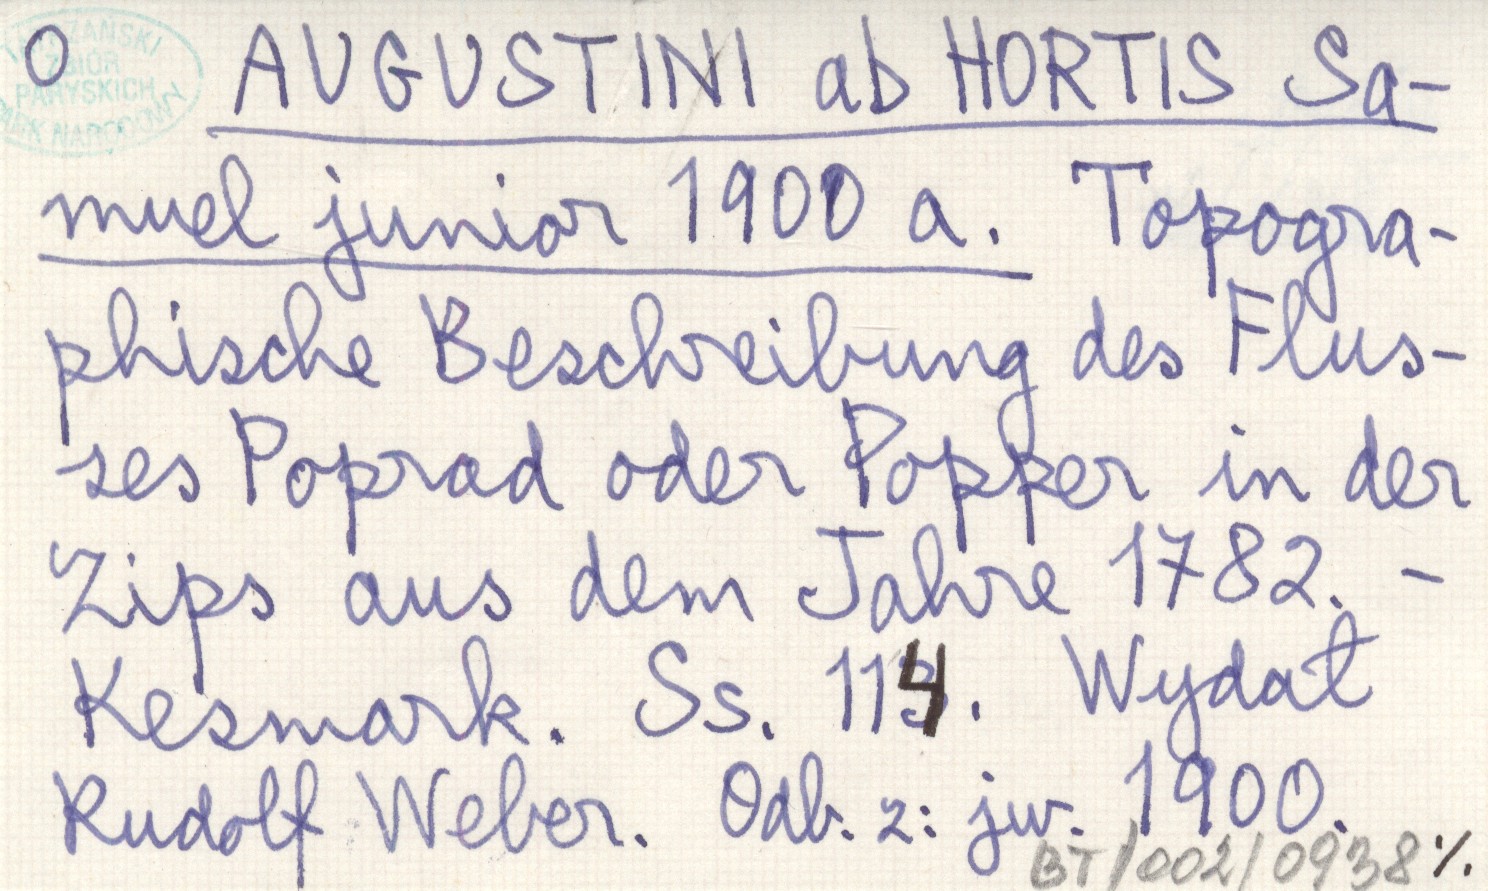 TATRZAŃSKI
ZBIÓR
PARYSKICH
PARK NARODOWY
O AUGUSTINI ab HORTIS Sa-
muel junior 1900 a. Topogra-
phische Beschreibung des Flus-
ses Poprad oder Popper in der
Zips aus dem Jahre 1782. -
Kesmark. Ss. 114. Wydał
Rudolf Weber. Odb. z: jw. 1900.
BT/002/0938 ./.